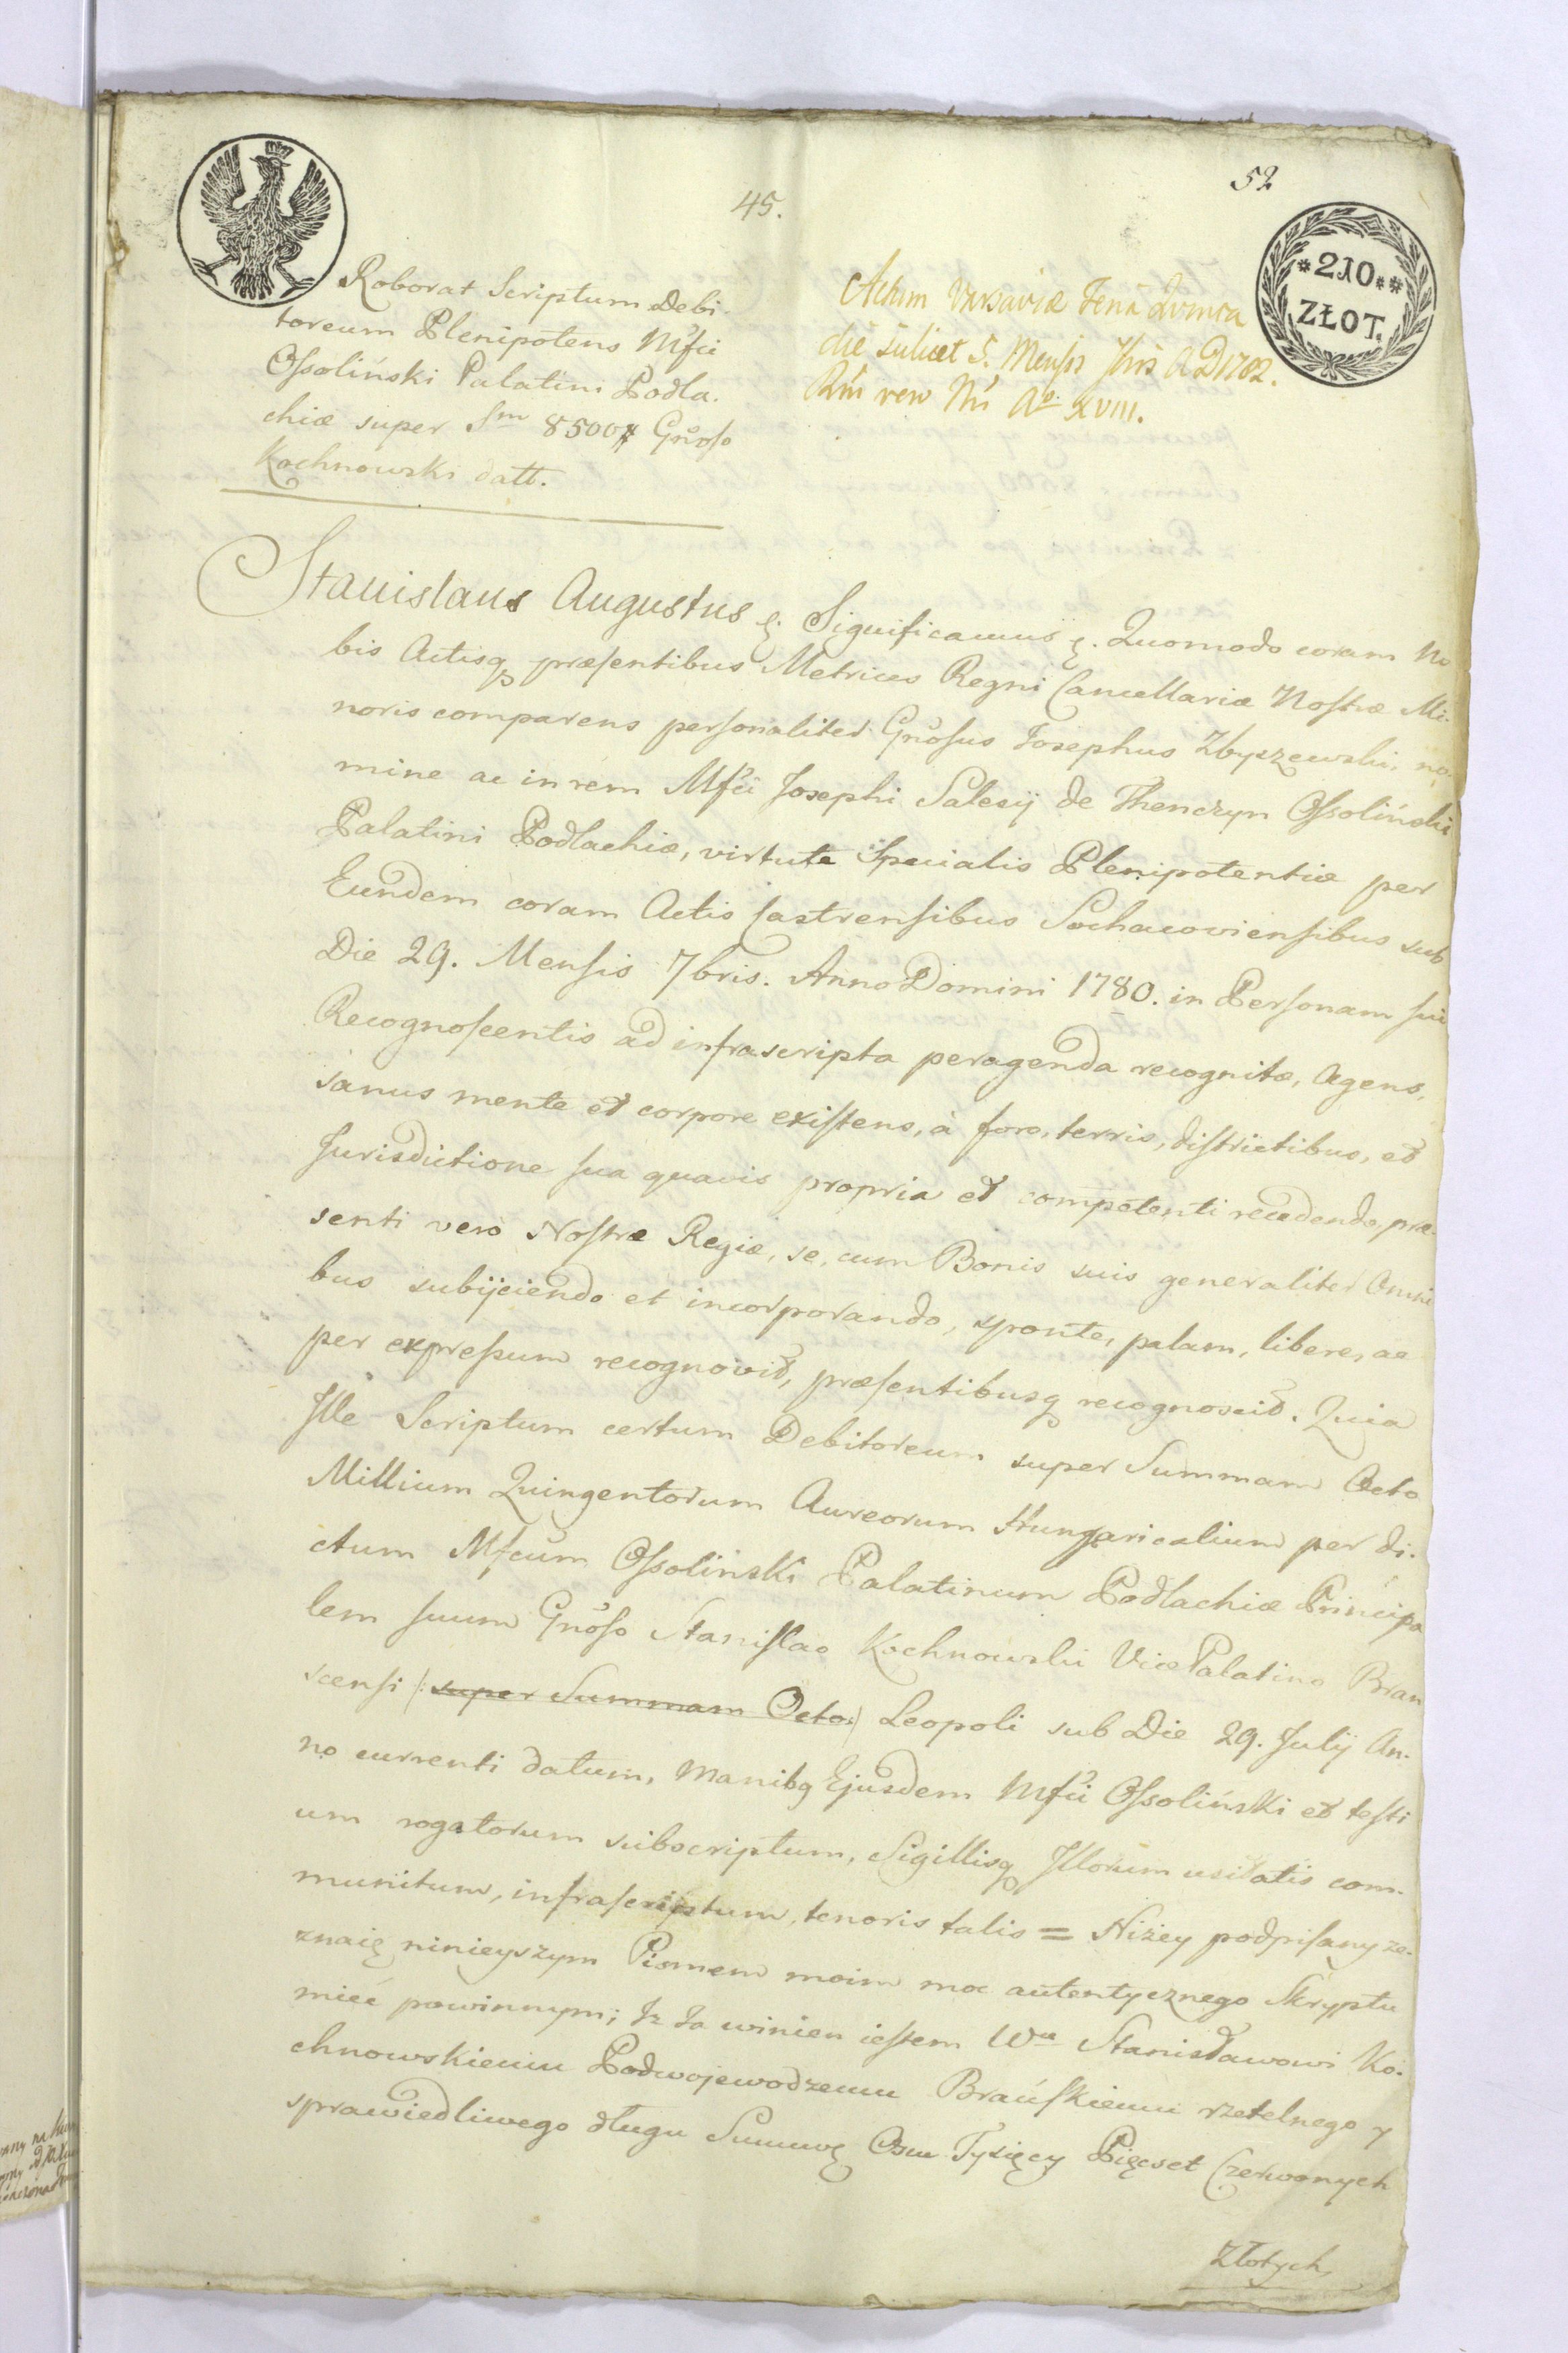 52
45.
*210**
ZŁOT.
Roborat Scriptum Debi
toreum Plenipotens Mfci
Ossoliński Palatini Podla.
chiæ super Sm 8500 # Gnoso
Kochnowski datt.
Actum Varsaviæ Feria
die 5. Mensis A D 1782.
Rni vero Nri Ao. XVIII.
Stanislaus Augustus &. Significamus &. Quomodo coram No
bis Actisq præsentibus Metrices Regni Cancellariæ Nostræ Mi-
noris comparens personaliter Gnosus Josephus Zbyszewski, no-
mine ac in rem Mfci Josephi Salesij de Thenczyn Ossoliński
Palatini Podlachiæ, virtute Specialis Plenipotentiæ per
Eundem coram Actis Castrensibus Sochacoviensibus sub
Die 29. Mensis 7bris. Anno Domini 1780. in Personam sui
Recognoscentis ad infrascripta peragenda recognitæ, Agens,
sanus mente et corpore existens, à foro, terris, districtibus, et
Jurisdictione sua quavis propria et competenti recedendo, præ-
senti vero Nostræ Regiæ, se, cum Bonis suis generaliter Omni
bus subijciendo et incorporando, sponte, palam, libere, ac
per expressum recognovit, præsentibusq recognoscit. Quia
Ille Scriptum certum Debitoreum super Summam Octo
Millium Quingentorum Aureorum Hungaricalium per di-
ctum Mfcum Ossoliński Palatinum Podlachiæ Principa
lem suum Gnoso Stanislao Kochnowski Vice Palatino Bran
scensi (: super Summam Octo :) Leopoli sub Die 29. Julij An-
no currenti datum, Manibq Ejusdem Mfci Ossoliński et testi
um rogatorum subscriptum, Sigillisq Illorum usitatis com-
munitum, infrascriptum, tenoris talis = Niżey podpisany ze-
znaię ninieyszym Pismem moim moc autentycznego Skryptu
mieć powinnym; Iż Ja winien iestem Wu Stanisławowi Ko-
chnowskiemu Podwojewodzemu Brańskiemu rzetelnego y
sprawiedliwego długu Summę Osm Tysięcy Pięcset Czerwonych
Złotych,